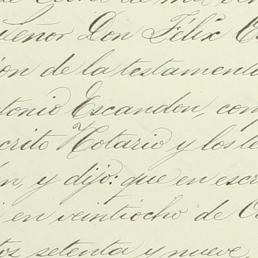 Señor Don Félix C
ión de la testamento
tonio Escandon, com
crito Notario y los te
n, y dijo: que en escri
i en veintiocho de O
tos setenta y nueve